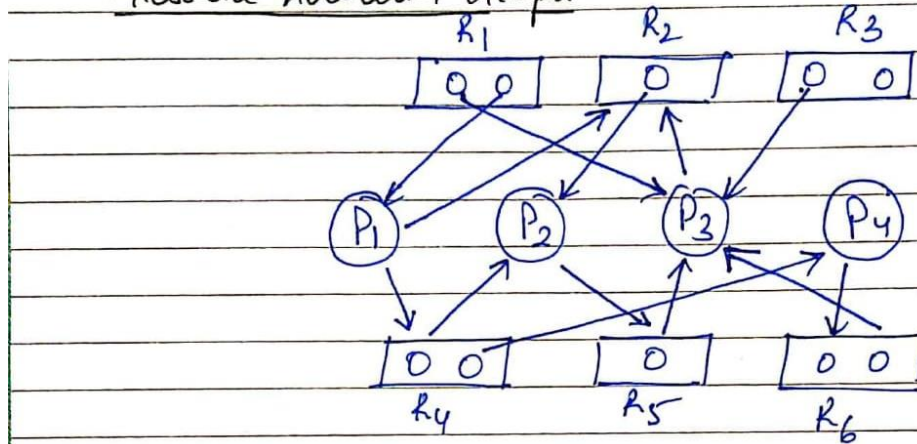 R1 R2 R3
P1 P2 P3 P4
R4 R5 R6